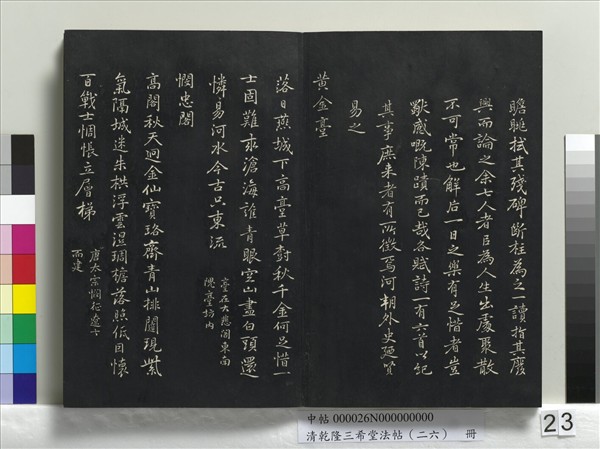 瞻眺拭其殘碑斷柱為之一讀指其廢
興而論之余七人者以為人生出處聚散
不可常也解后一日之樂有足惜者豈
感慨陳蹟而已哉各賦詩一有六首以紀
其事庶来者有所徵焉河朔外史廼賢
易之
黄金臺
落日燕城下高臺草樹秋千金何足惜一
士固難求滄海誰青眼空山盡白頭還
憐易河水今古只東流
臺在大悲閣東南
隗臺坊内
憫忠閣
高閣秋天迥金仙寶珞齊青山排闥現紫
氣隔城迷朱栱浮雲濕琱簷落照低因懷
百戰士惆悵立層梯
唐太宗憫征遼士
而建
中帖 000026N000000000
清乾隆三希堂法帖（二六） 冊
23